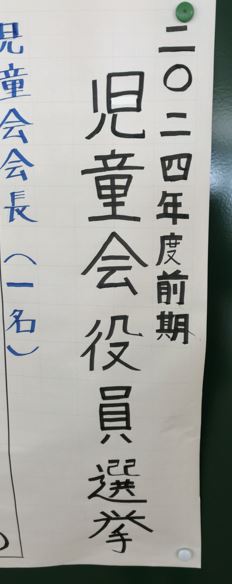 二〇二四年度前期
児童会役員選挙
児童会会長（一名）